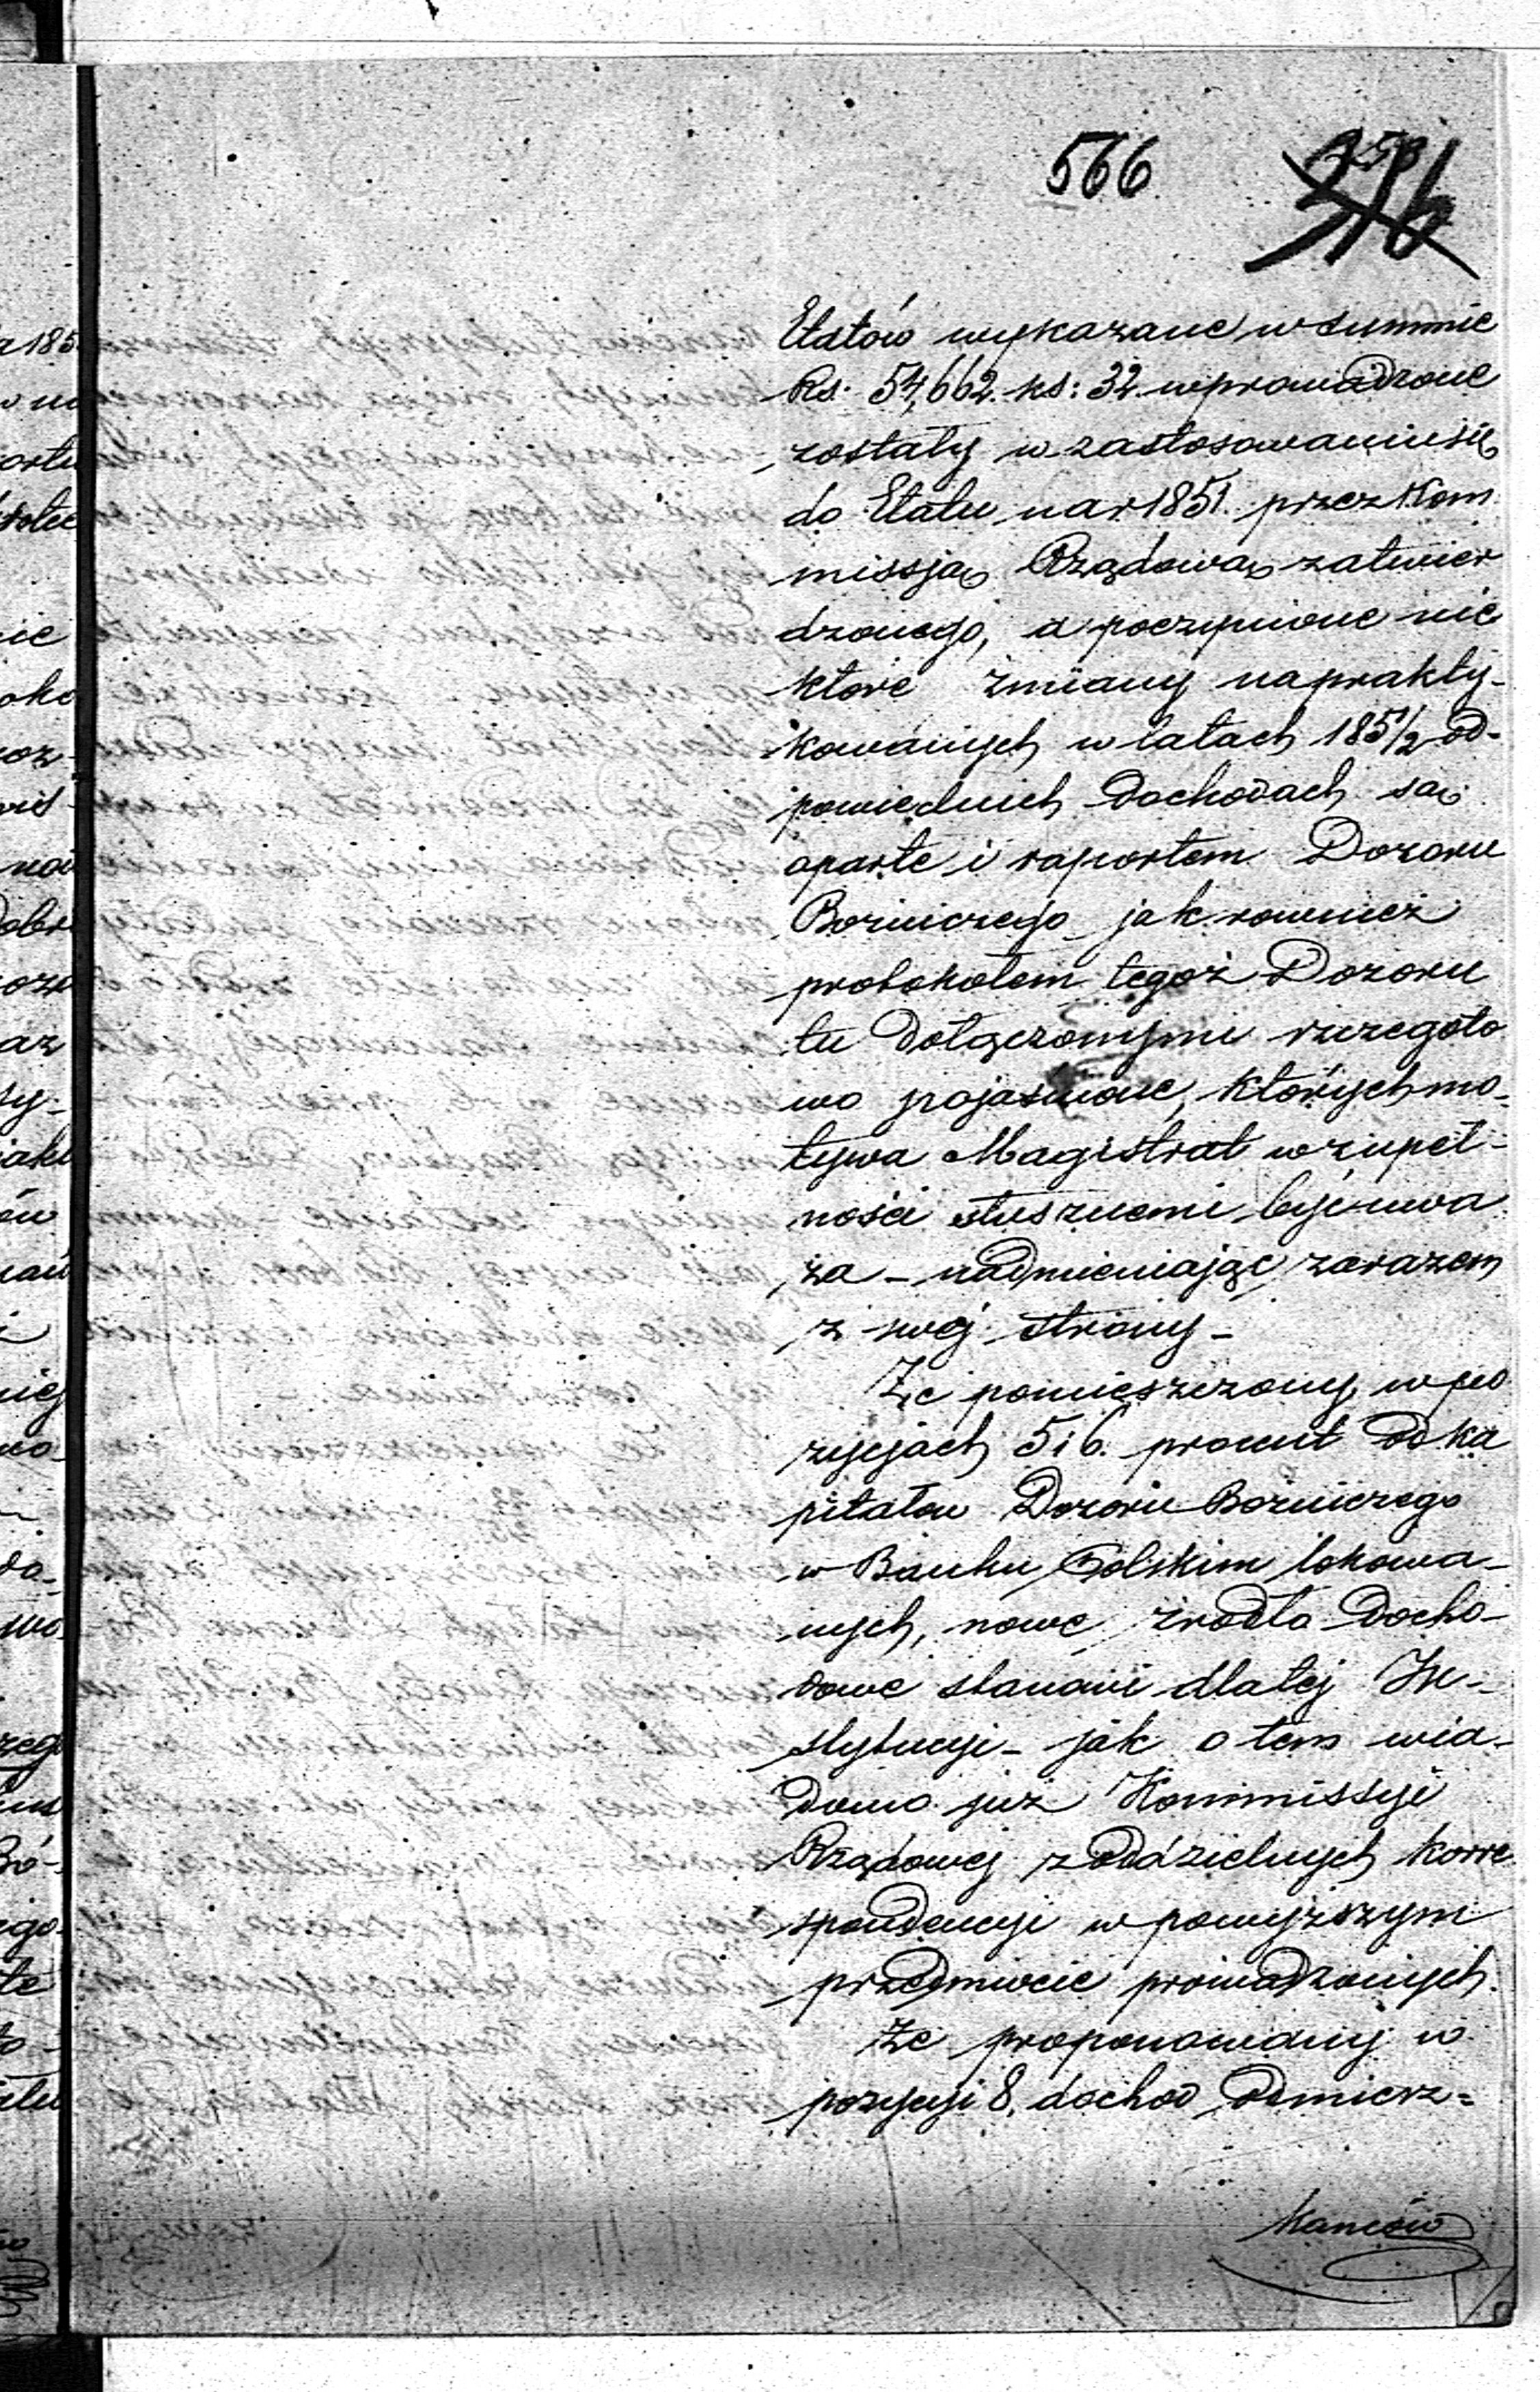 566
Etatów wykazane w summie
Rs. 54,662. ks: 32. wprowadzone
zostały w zastosowaniu się
do Etatu na r 1851. przez Kom
missją Rządową zatwier
dzonego, a poczynione nie
które zmiany na prakty-
kowanych w latach 185½ od-
powiednich dochodach są
oparte i raportem Dozoru
Bożniczego jak rownież
protokołem tegoż Dozoru
tu dołączonymi szczegoło
wo pojasnione, których mo-
tywa Magistrat w zupeł-
ności słusznemi być uwa
ża - nadmieniając zarazem
z swej strony -
Że pomieszczony w po
zycjach 5 i 6. procent od ka
pitałow Dozoru Bożniczego
w Banku Polskim lokowa-
nych, nowe źrodło docho-
dowe stanowi dla tej In-
stytucyi - jak o tem wia-
domo już Kommissyi
Rządowej z oddzielnych korre
spondencyi w powyższym
przedmiocie prowadzonych.
Że proponowany w
pozycyi 8, dochod od mierz=
kancow